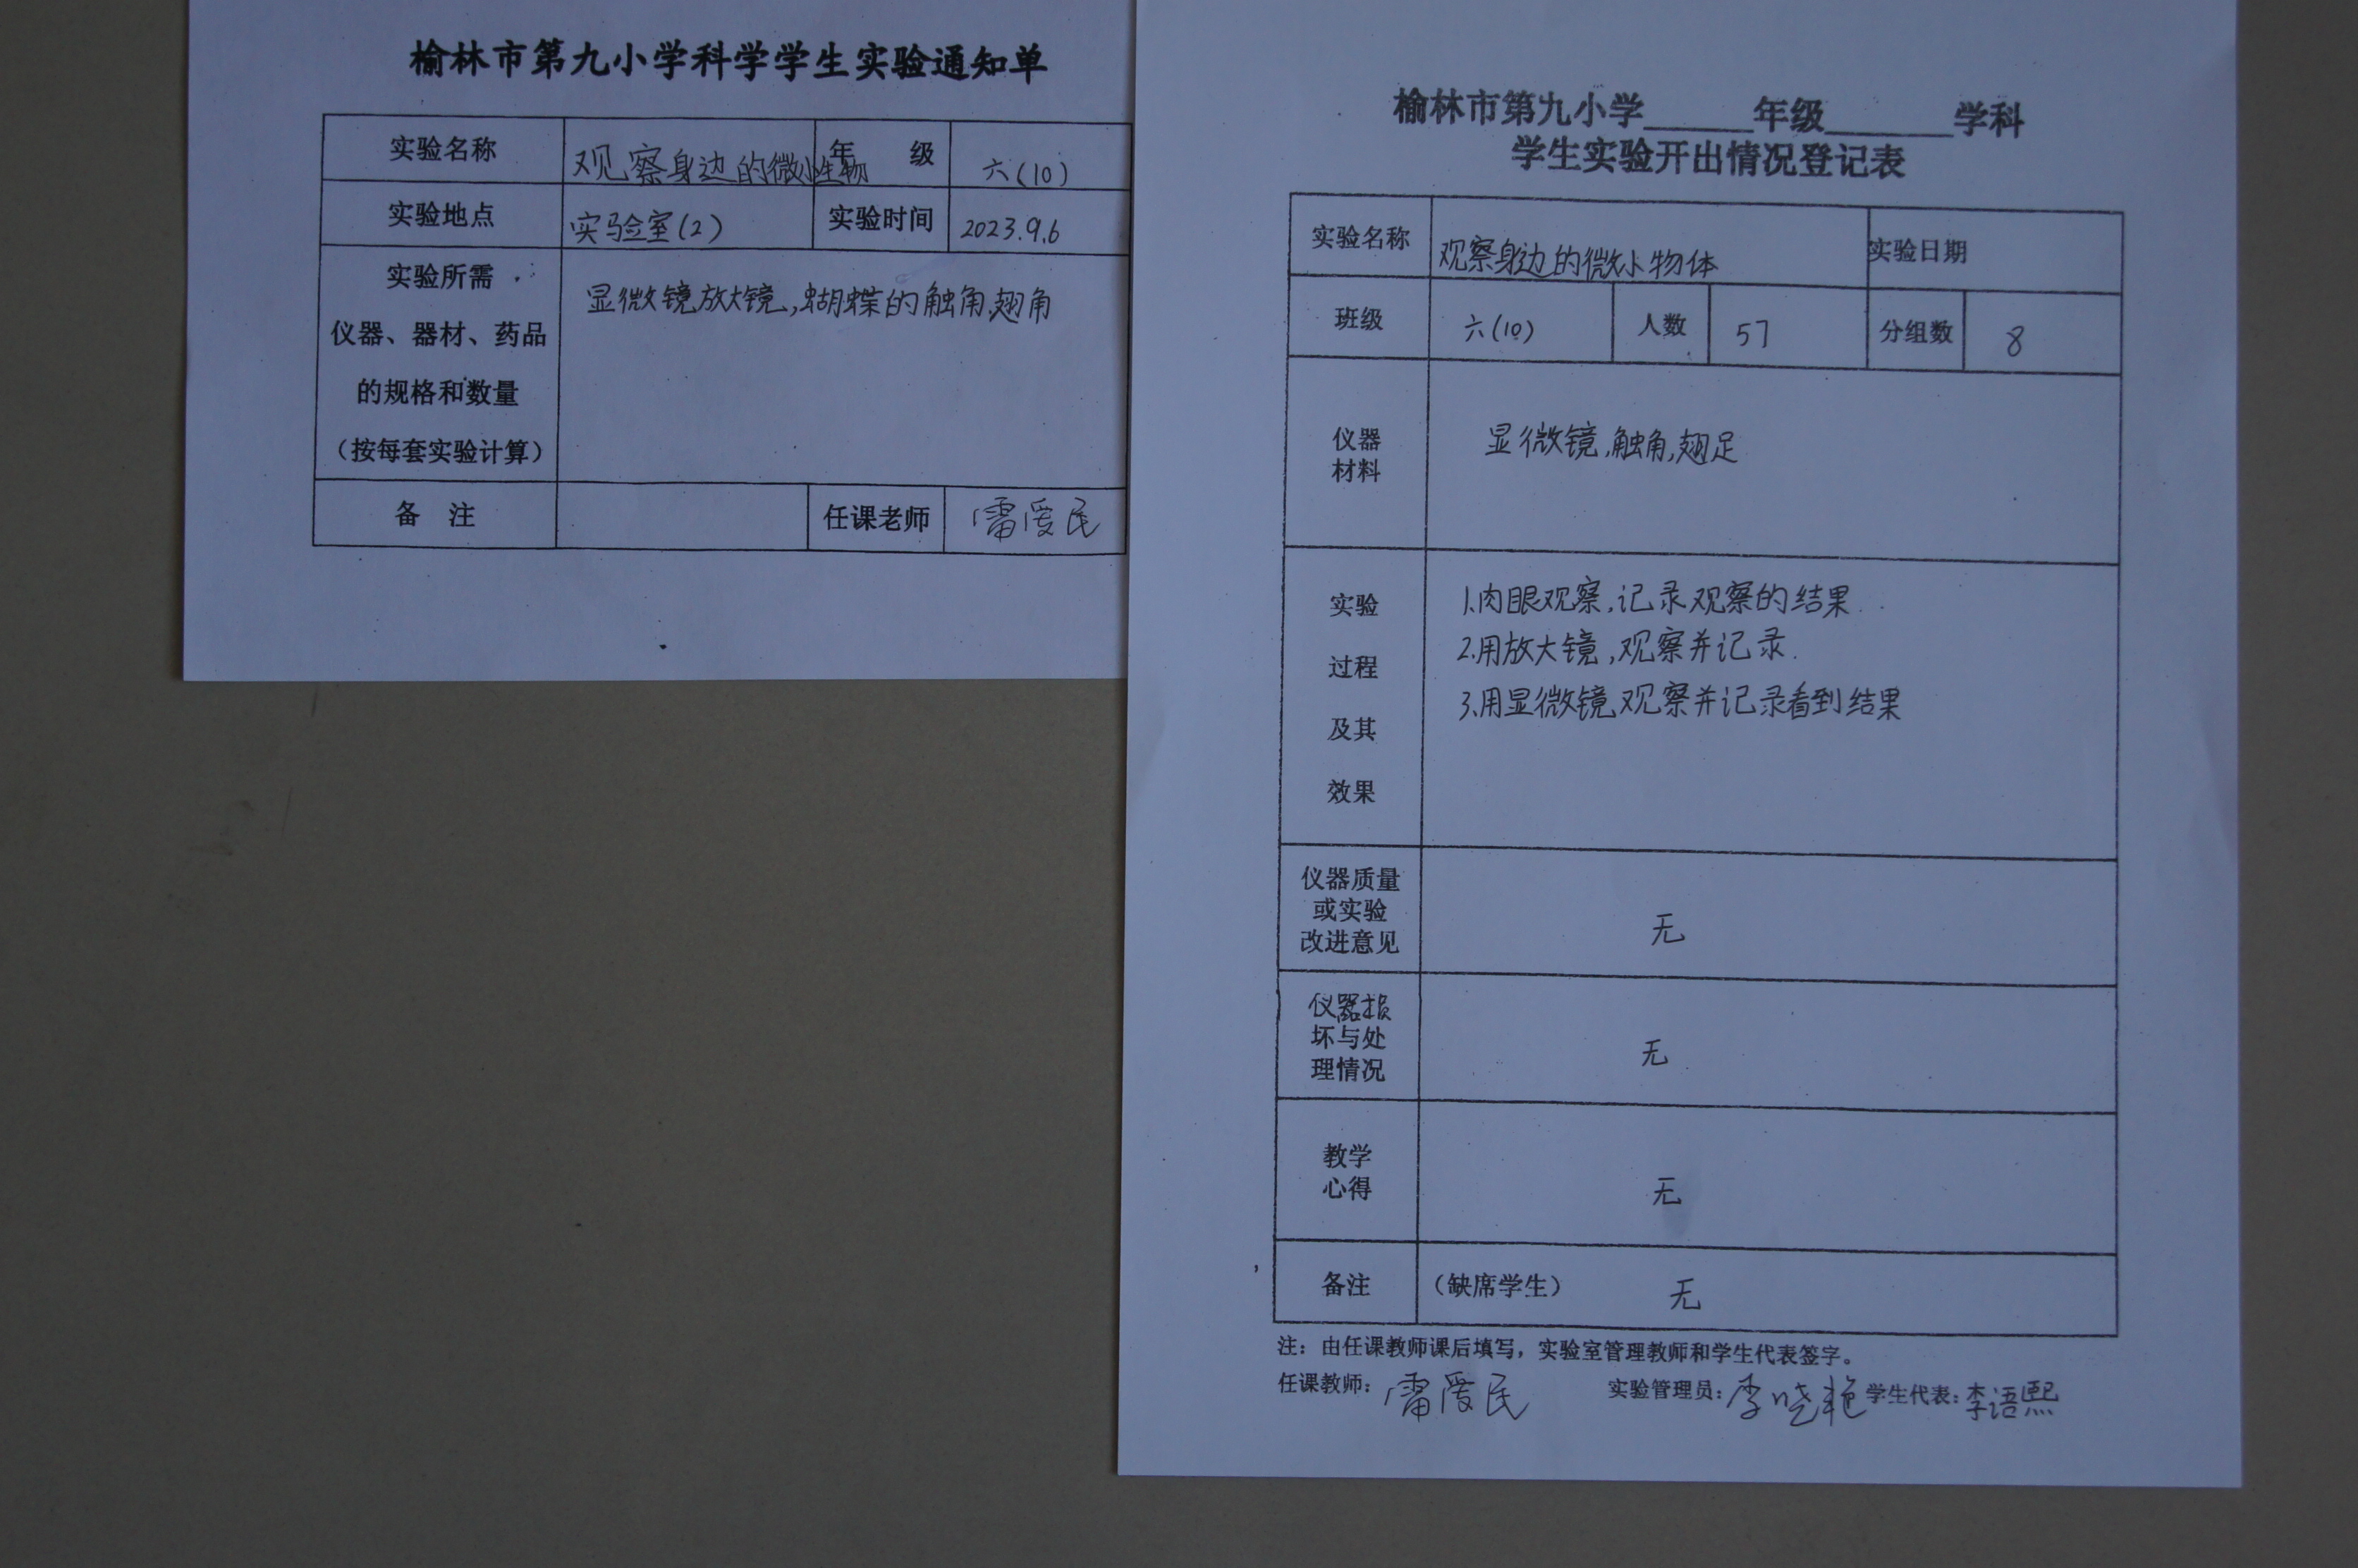 榆林市第九小学科学学生实验通知单
实验名称 观察身边的微小生物 年 级 六(10)
实验地点 实验室(2) 实验时间 2023.9.6
实验所需
仪器、器材、药品
的规格和数量
(按每套实验计算)
显微镜,放大镜,蝴蝶的触角,翅角
备 注 任课老师 雷爱民
榆林市第九小学______年级_______学科
学生实验开出情况登记表
实验名称 观察身边的微小物体 实验日期
班级 六(10) 人数 57 分组数 8
仪器
材料
显微镜,触角,翅足
实验
过程
及其
效果
1.肉眼观察,记录观察的结果.
2.用放大镜,观察并记录.
3.用显微镜观察并记录看到结果
仪器质量
或实验
改进意见
无
仪器损
坏与处
理情况
无
教学
心得
无
备注 (缺席学生) 无
注:由任课教师课后填写,实验室管理教师和学生代表签字。
任课教师:雷爱民 实验管理员:李晓艳 学生代表:李语熙